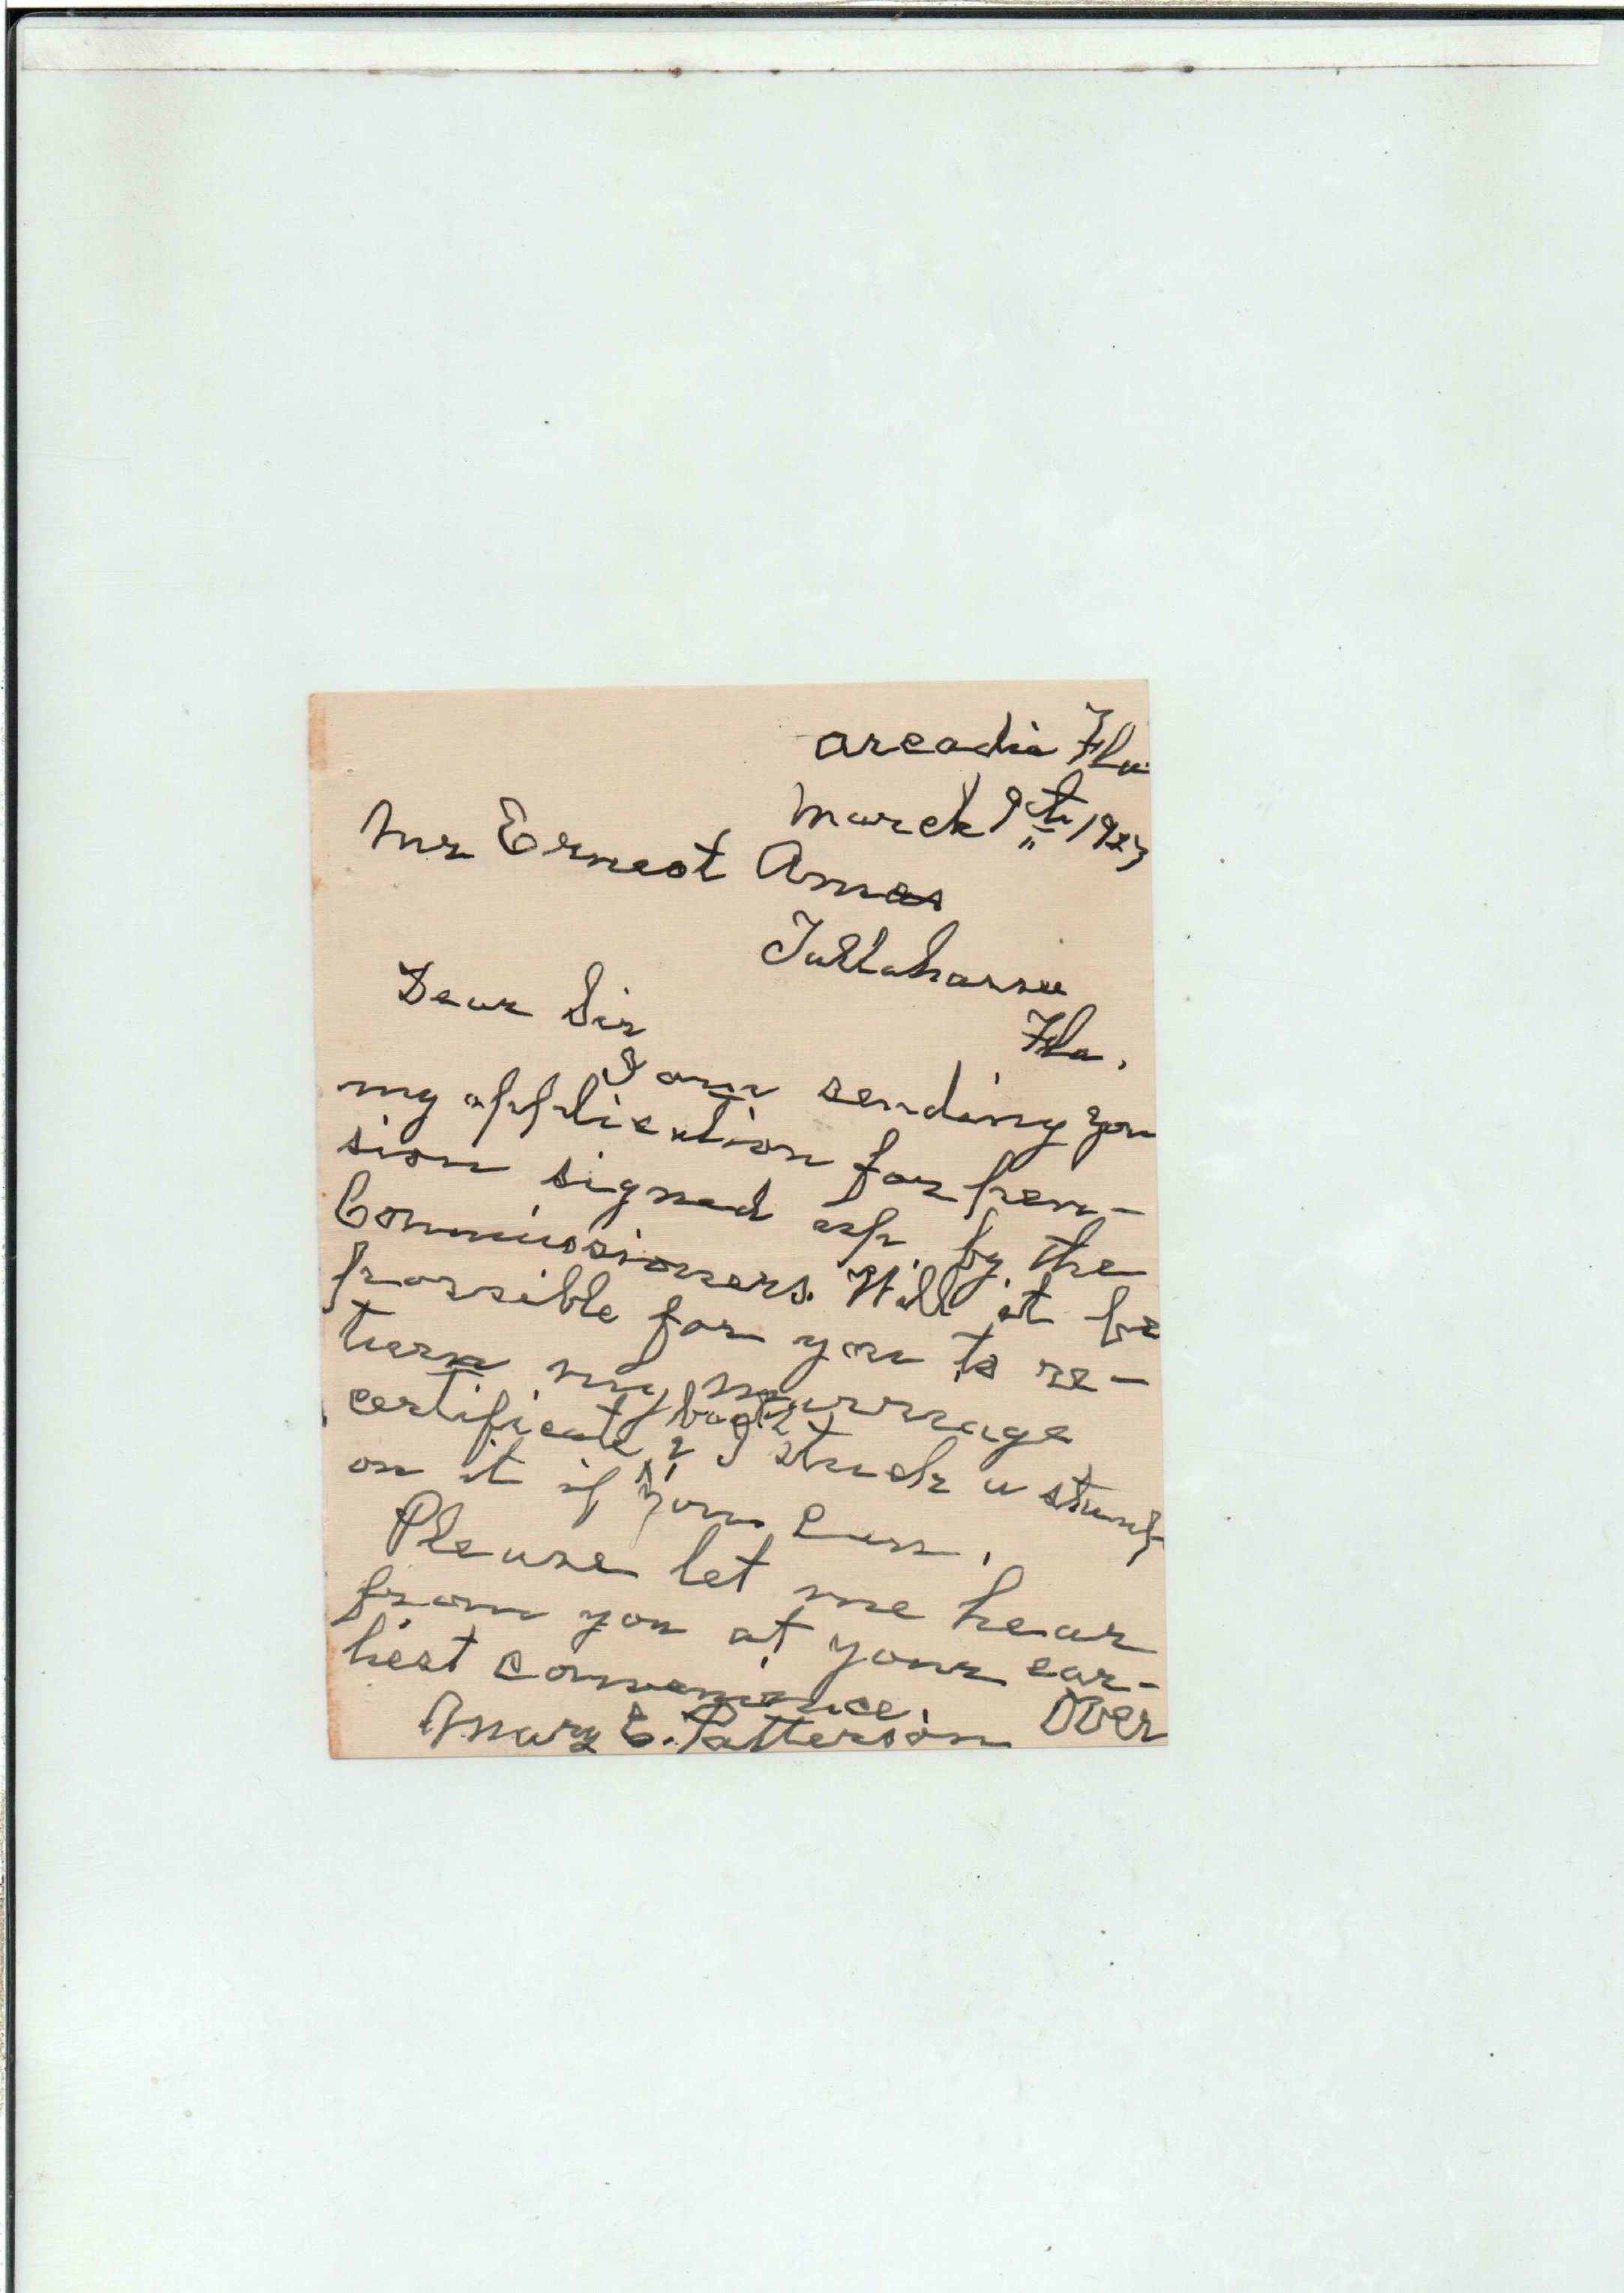 Arcadia Fla
March 9th 1923
Mr Ernest Amos
Tallahassee
Fla.
Dear Sir
I am sending you
my application for pen-
sion signed up by the
Commissioners. Will it be
possible for you to re-
turn my marrriage
certificate back? I stuck a stamp
on it if you can.
Please let me hear
from you at your ear-
liest convenience.
Mary E. Patterson Over